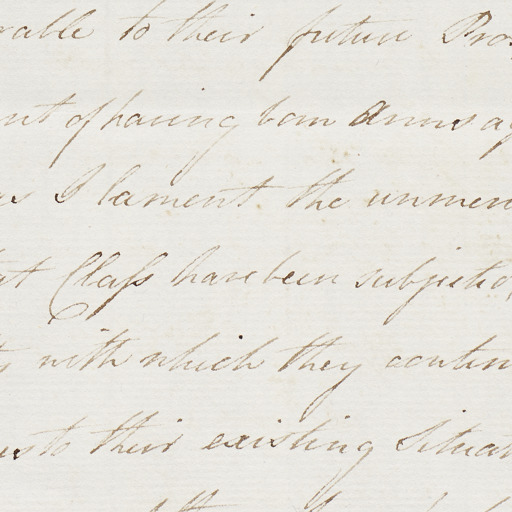 rable to their future Pros
nt of having born Arms ag
as I lament the unmer
at Class have been subjected
with which they contin
as to their existing Situat